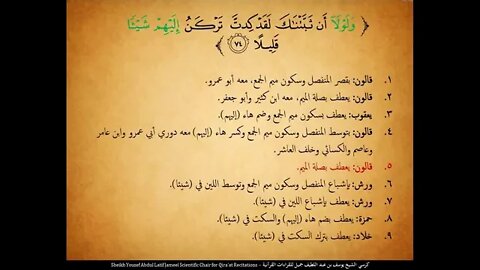 ﴿ وَلَوْلَا أَن ثَبَّتْنَاكَ لَقَدْ كِدتَّ تَرْكَنُ إِلَيْهِمْ شَيْئًا
قَلِيلًا ٧٤ ﴾
١. قالون: بقصر المنفصل وسكون ميم الجمع، معه أبو عمرو.
٢. قالون: يعطف بصلة الميم، معه ابن كثير وأبو جعفر.
٣. يعقوب: يعطف بسكون ميم الجمع وضم هاء (إليهم).
٤. قالون: بتوسط المنفصل وسكون ميم الجمع وكسر هاء (إليهم) معه دوري أبي عمرو وابن عامر
وعاصم والكسائي وخلف العاشر.
٥. قالون: يعطف بصلة الميم.
٦. ورش: بإشباع المنفصل وسكون ميم الجمع وتوسط اللين في (شيئا).
٧. ورش: يعطف بإشباع اللين في (شيئا).
٨. حمزة: يعطف بضم هاء (إليهم) والسكت في (شيئا).
٩. خلاد: يعطف بترك السكت في (شيئا).
كرسي الشيخ يوسف بن عبد اللطيف جميل للقراءات القرآنية - Sheikh Yousef Abdul Latif Jameel Scientific Chair for Qira'at Recitations